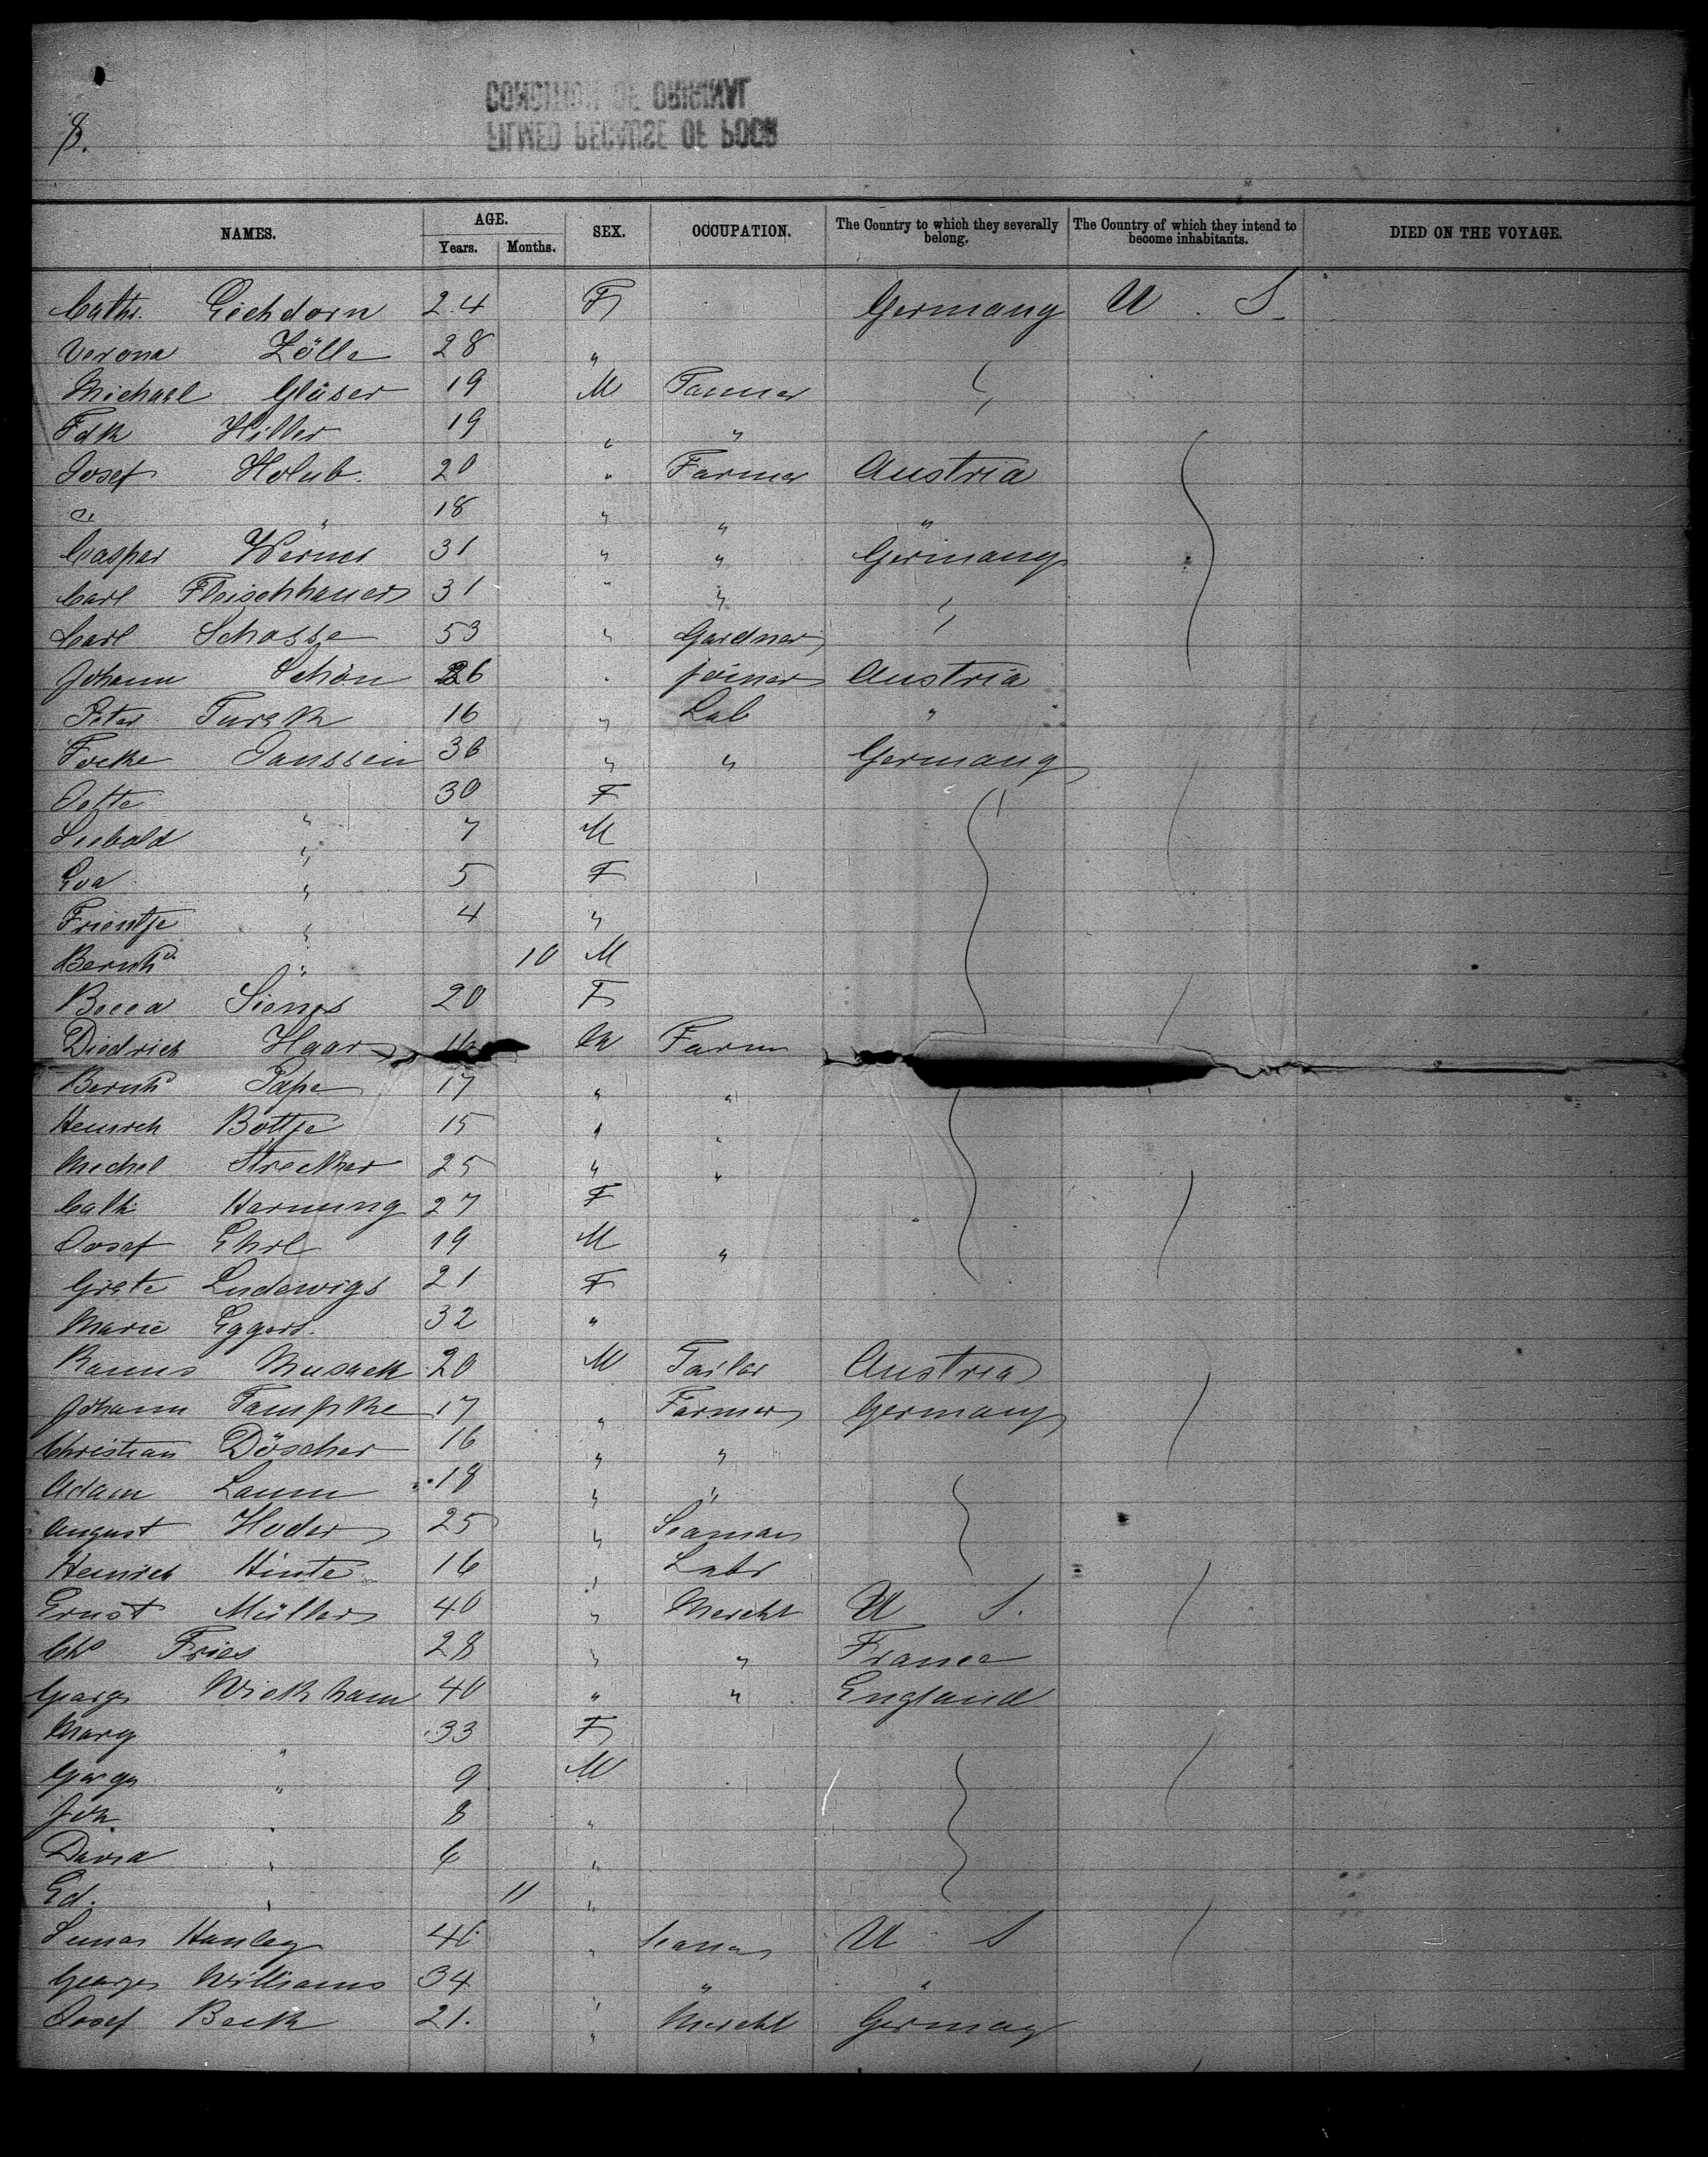 8.
NAMES. AGE. Years. Months. SEX. OCCUPATION. The Country to which they severally belong. The Country of which they intend to become inhabitants. DIED ON THE VOYAGE.
Cathr. Eichdorn 24 F Germany U. S.
Verona Zölle 28 "
Michael Gläser 19 M Tanner "
Fdk Hiller 19 " "
Josef Holub. 20 " Farmer Austria
" " 18 " " "
Casper Werner 31 " " Germany
Carl Fleischhauer 31 " " "
Carl Schosse 53 " Gardner
Johann Schön 26 " joiner Austria
Peter Turek 16 " Lab "
Focke Janssen 36 " " Germany
Jette " 30 F
Siebold " 7 M
Eva " 5 F
Frientje " 4 "
Bernhd " 10 M
Becca Siems 20 F
Diedrich Haar 16 M Farm
Bernhd Pape 17 " "
Heinrich Bottje 15 " "
Michel Strecker 25 " "
Cath. Harnung 27 F
Josef Ehrl 19 M "
Grete Ludewigs 21 F
Marie Eggers. 32 "
Musack 20 M Tailor Austria
Johann Tampke 17 " Farmer Germany
Christian Döscher 16 " "
Adam Laum 18 " "
August Hoder 25 " Seaman
Heinrich Hinte 16 " Labr
Ernst Müller 40 " Mercht U S.
Chs Fries 28 " " France
George Wickham 40 " " England
Mary " 33 F
George " 9 M
Joh. " 8 "
David " 6 "
Ed. " 11 "
Hanley 46 " Seaman U S
George Williams 34 " " "
Josef Beck 21. " Mercht Germany